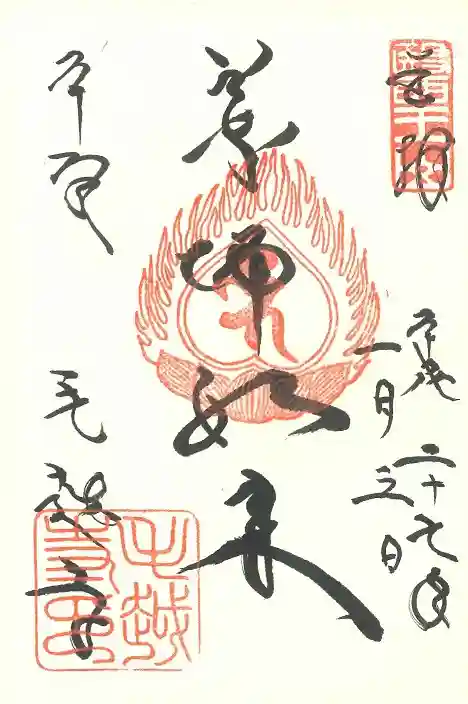 奉拝
平成二十九年
一月三日
薬師如来
平泉
毛越寺
毛越寺印